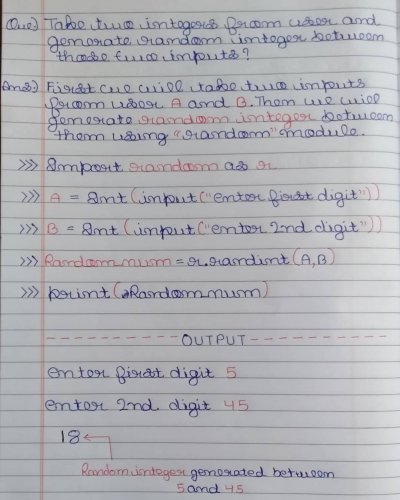 Que) Take two integers from user and
generate random integer between
those two inputs?
Ans) First we will take two inputs
from user A and B. Then we will
generate random integer between
them using "random" module.
>>> Import random as r
>>> A = Int (input ("enter first digit"))
>>> B = Int (input ("enter 2nd digit"))
>>> Random num = r.randint (A,B)
>>> print (Random num)
OUTPUT
enter first digit 5
enter 2nd digit 45
18
Random integer generated between
5 and 45